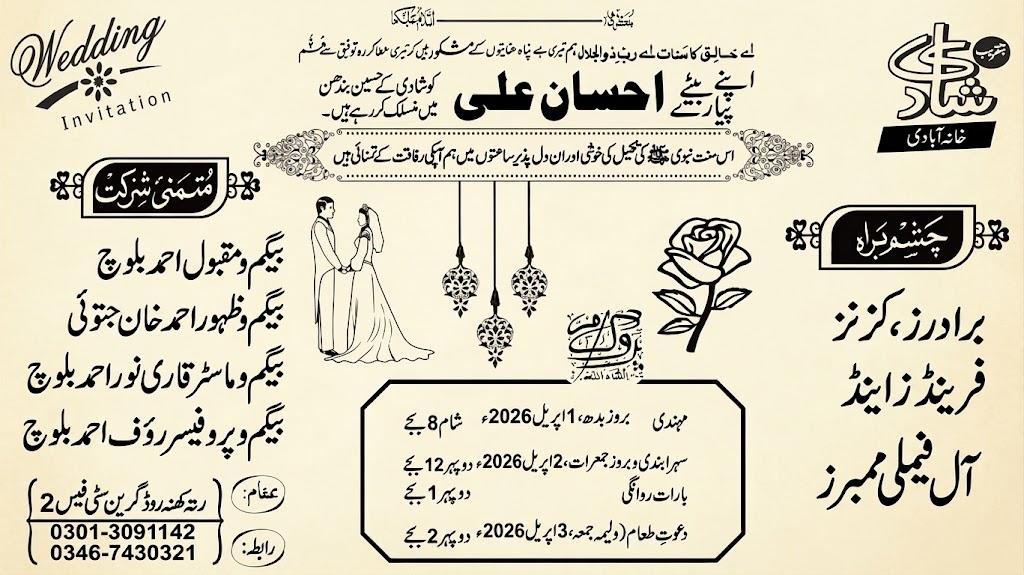 Wedding
Invitation
السلام علیکم
بتقریب
شادی
خانہ آبادی
اے خالق کائنات اے رب ذوالجلال ہم تیری بے پناہ عنایتوں کے مشکور ہیں کہ تیری عطا کردہ توفیق سے ہم
اپنے پیارے بیٹے احسان علی کو شادی کے حسین بندھن میں منسلک کر رہے ہیں۔
اس سنت نبوی ﷺ کی تکمیل کی خوشی اور ان دل پذیر ساعتوں میں ہم آپکی رفاقت کے تمنائی ہیں
چشم براہ
برادرز، کزنز
فرینڈز اینڈ
آل فیملی ممبرز
متمنی شرکت
بیگم و مقبول احمد بلوچ
بیگم و ظہور احمد خان جتوئی
بیگم و ماسٹر قاری نور احمد بلوچ
بیگم و پروفیسر رؤف احمد بلوچ
پروگرام
مہندی بروز بدھ، 1 اپریل 2026ء شام 8 بجے
سہرا بندی و بروز جمعرات، 2 اپریل 2026ء دوپہر 12 بجے
بارات روانگی دوپہر 1 بجے
دعوتِ طعام (ولیمہ جمعہ، 3 اپریل 2026ء دوپہر 2 بجے
رتہ کھنہ روڈ گرین سٹی فیس 2
رابطہ:
0301-3091142
0346-7430321